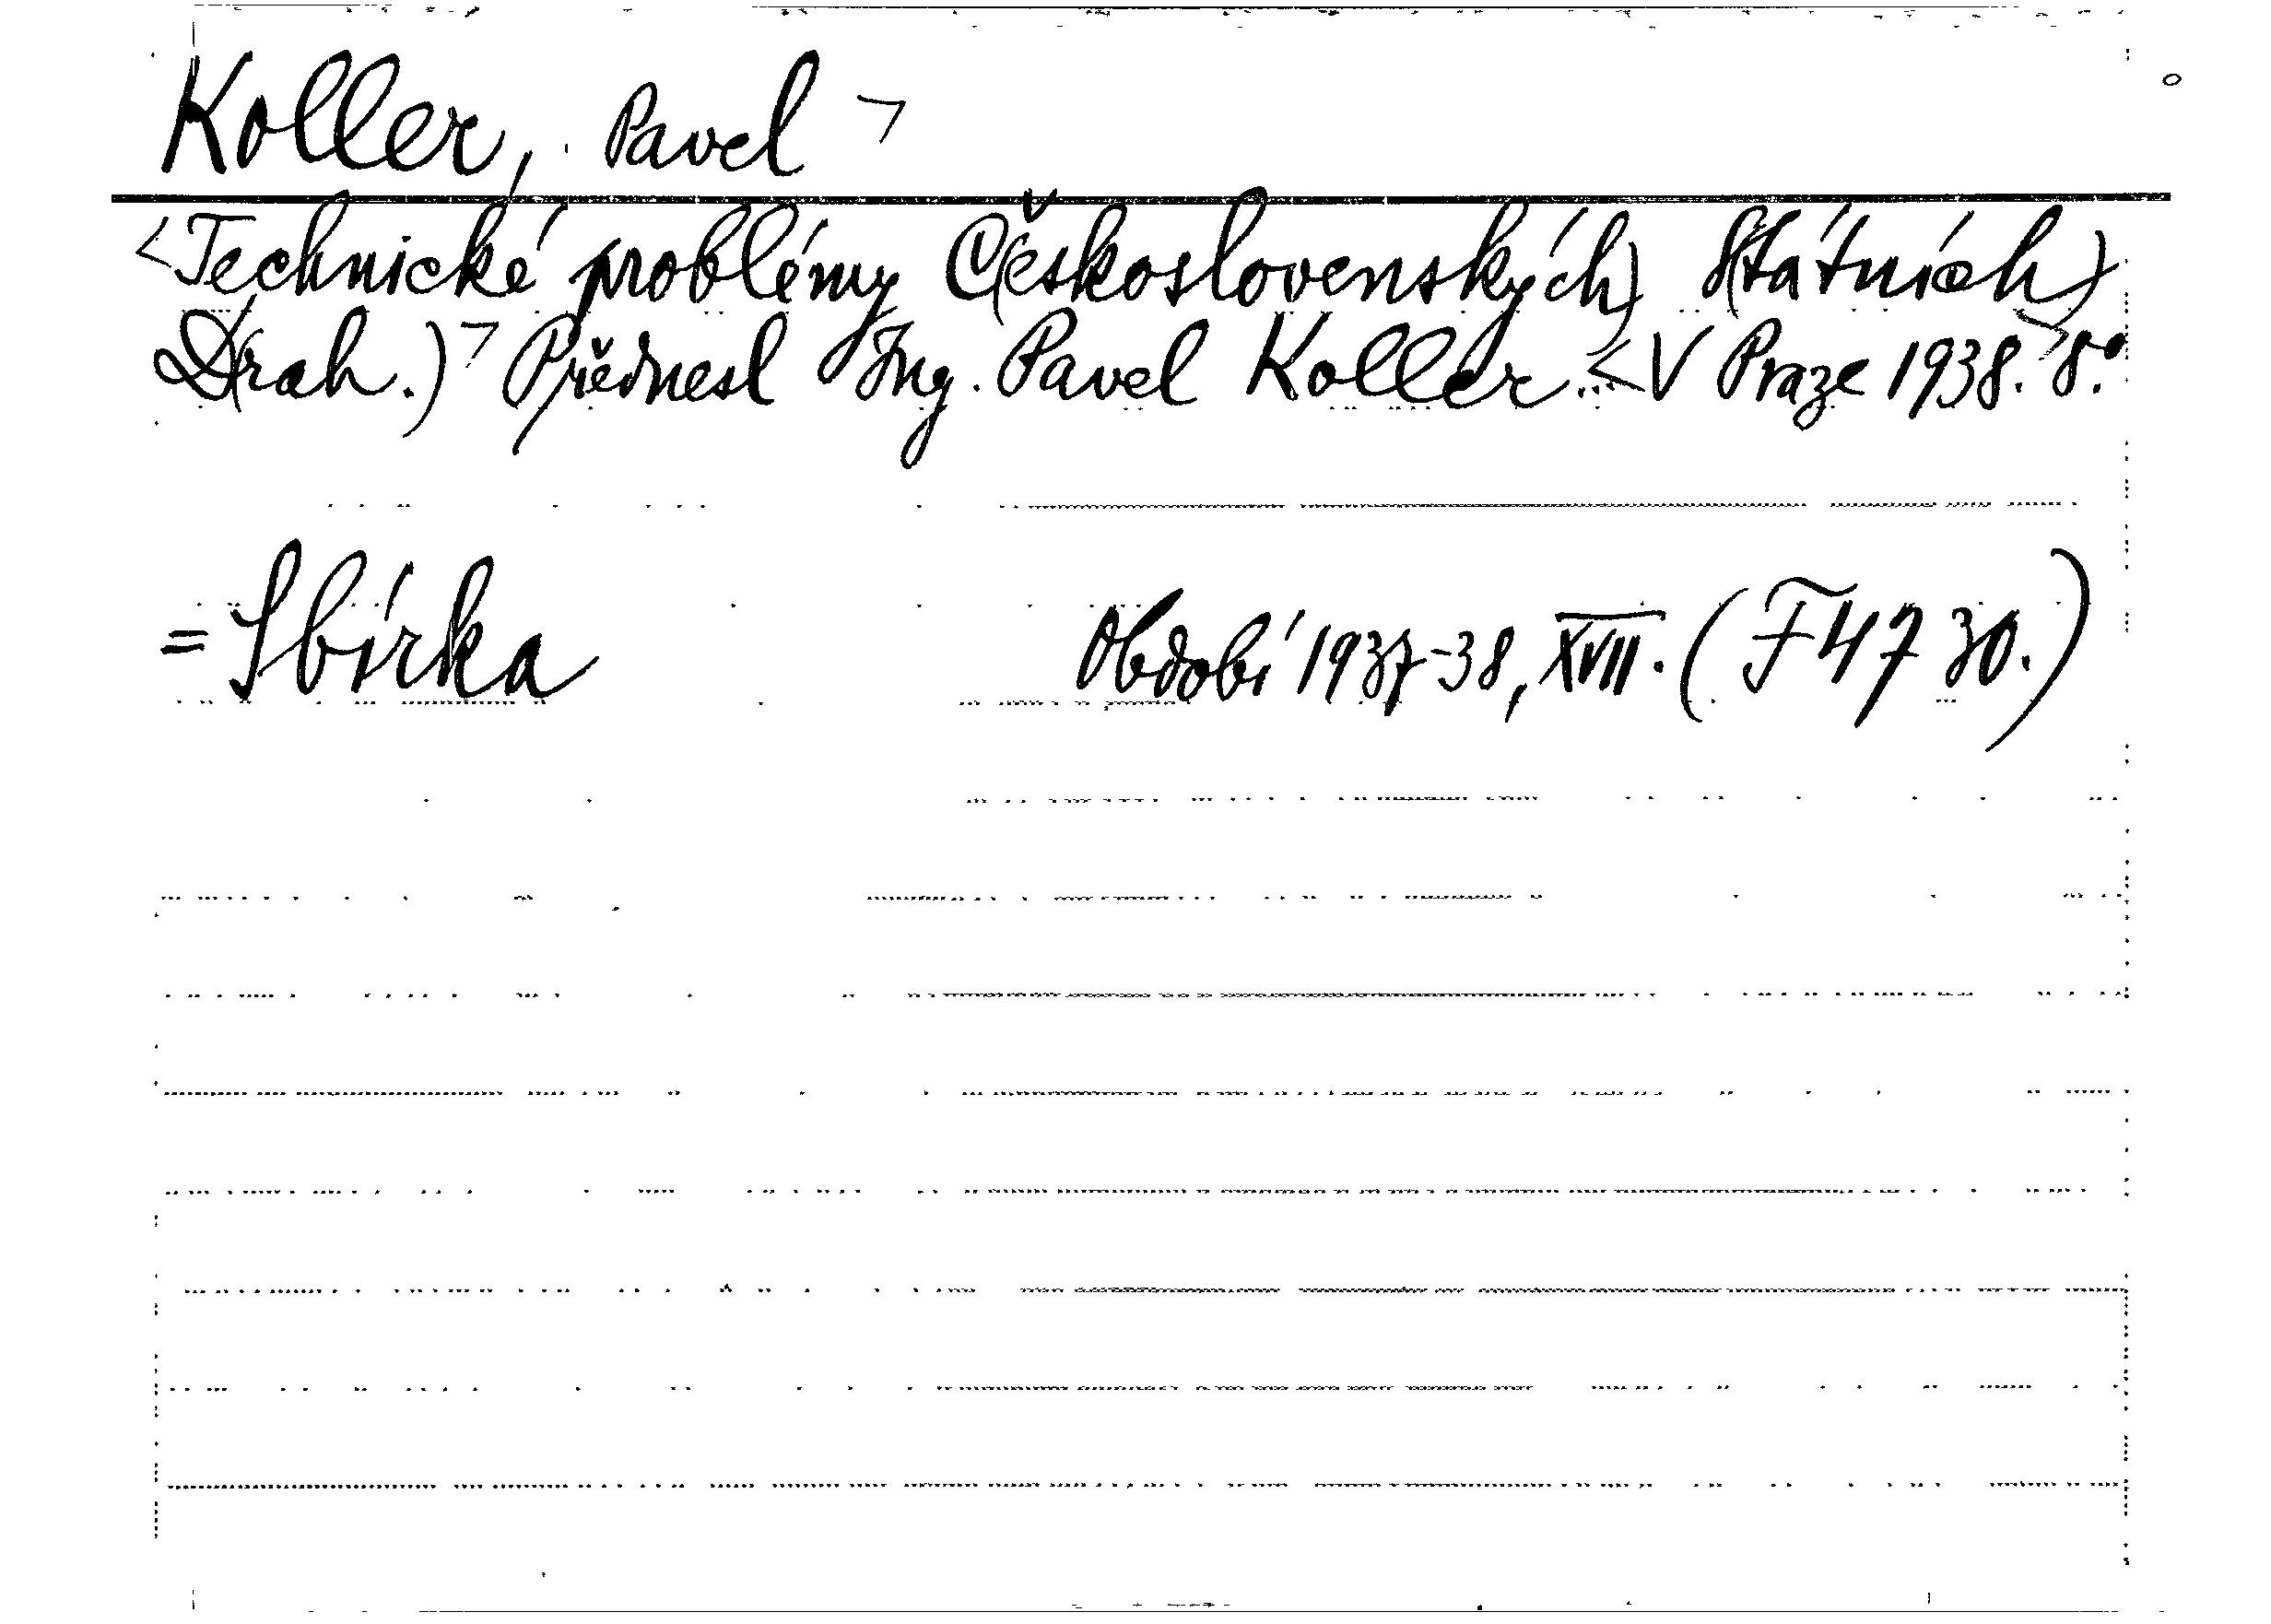 Koller, Pavel >
<Technické problémy Č(eskoslovenských) S(tátních)
D(rah.)> Přednesl Ing. Pavel Koller. <V Praze 1938.> 8.°
= Sbírka Období 1937-38, XVII. (F 4730.)